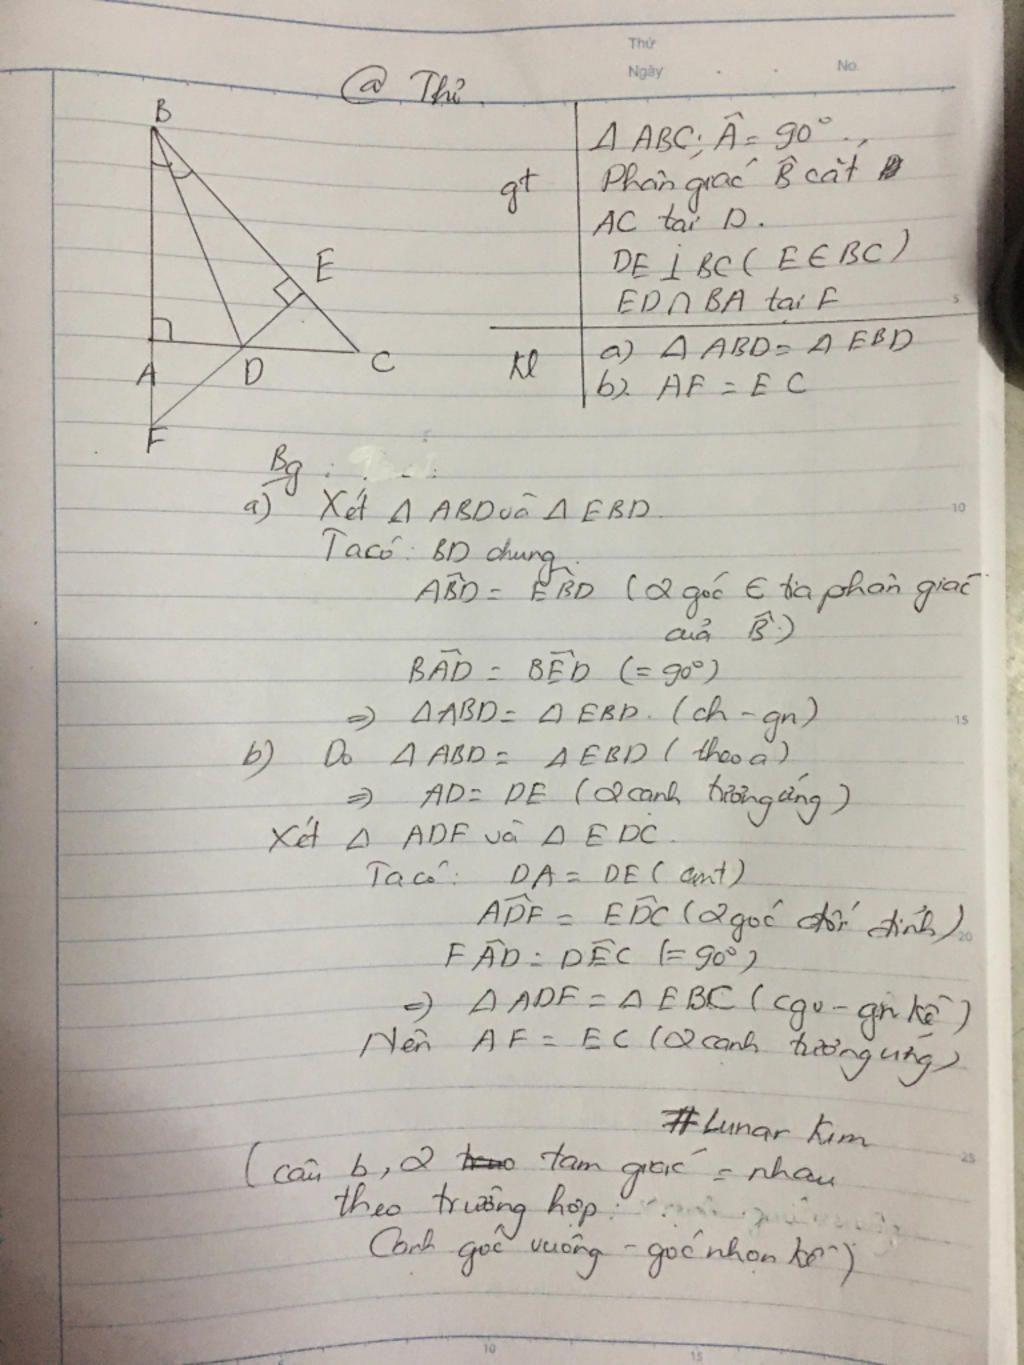 Thứ
Ngày
No.
@ Thi
B
E
A
D
C
F
gt
Δ ABC; Â = 90°,
Phân giác B̂ cắt
AC tại D.
DE ⊥ BC ( E ∈ BC )
ED ∩ BA tại F
5
Kl
a) Δ ABD = Δ EBD
b) AF = EC
Bg :
a) Xét Δ ABD và Δ EBD.
10
Ta có: BD chung.
AB̂D = EB̂D (2 góc ∈ tia phân giác
của B̂)
BÂD = BÊD (= 90°)
⇒ ΔABD = Δ EBD. (ch - gn)
15
b) Do Δ ABD = Δ EBD ( theo a)
⇒ AD = DE (2 cạnh tương ứng)
Xét Δ ADF và Δ EDC.
Ta có: DA = DE ( cmt)
AD̂F = ED̂C (2 góc đối đỉnh)
20
FÂD = DÊC (= 90°)
⇒ Δ ADF = Δ EBC ( cgv - gn kề )
Nên AF = EC (2 cạnh tương ứng)
#Lunar Kim
(câu b, 2 tam giác = nhau
25
theo trường hợp:
Cạnh góc vuông - góc nhọn kề)
10
15